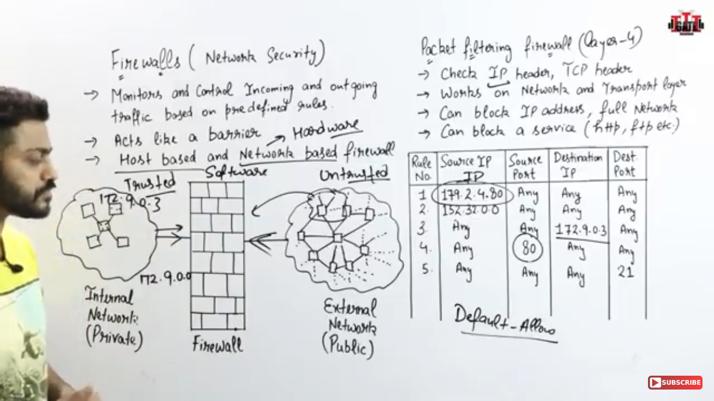 Firewalls (Network Security)
→ Monitors and Control Incoming and outgoing
traffic based on predefined rules.
→ Acts like a barrier
→ Hardware
→ Host based and Network based firewall
Software
Trusted
Untrusted
172.9.0.3
172.9.0.0
Internal
Network
(Private)
Firewall
External
Network
(Public)
Packet filtering firewall (Layer-4)
→ Check IP header, TCP header
→ Works on Network and Transport layer
→ Can block IP address, full Network
→ Can block a service (http, ftp etc.)
Rule No. Source IP Source Port Destination IP Dest. Port
IP
1 179.2.4.80 Any Any Any
2. 152.32.0.0 Any Any Any
3. Any Any 172.9.0.3 Any
4. Any 80 Any Any
5. Any Any Any 21
Default-Allow
GATE
SUBSCRIBE